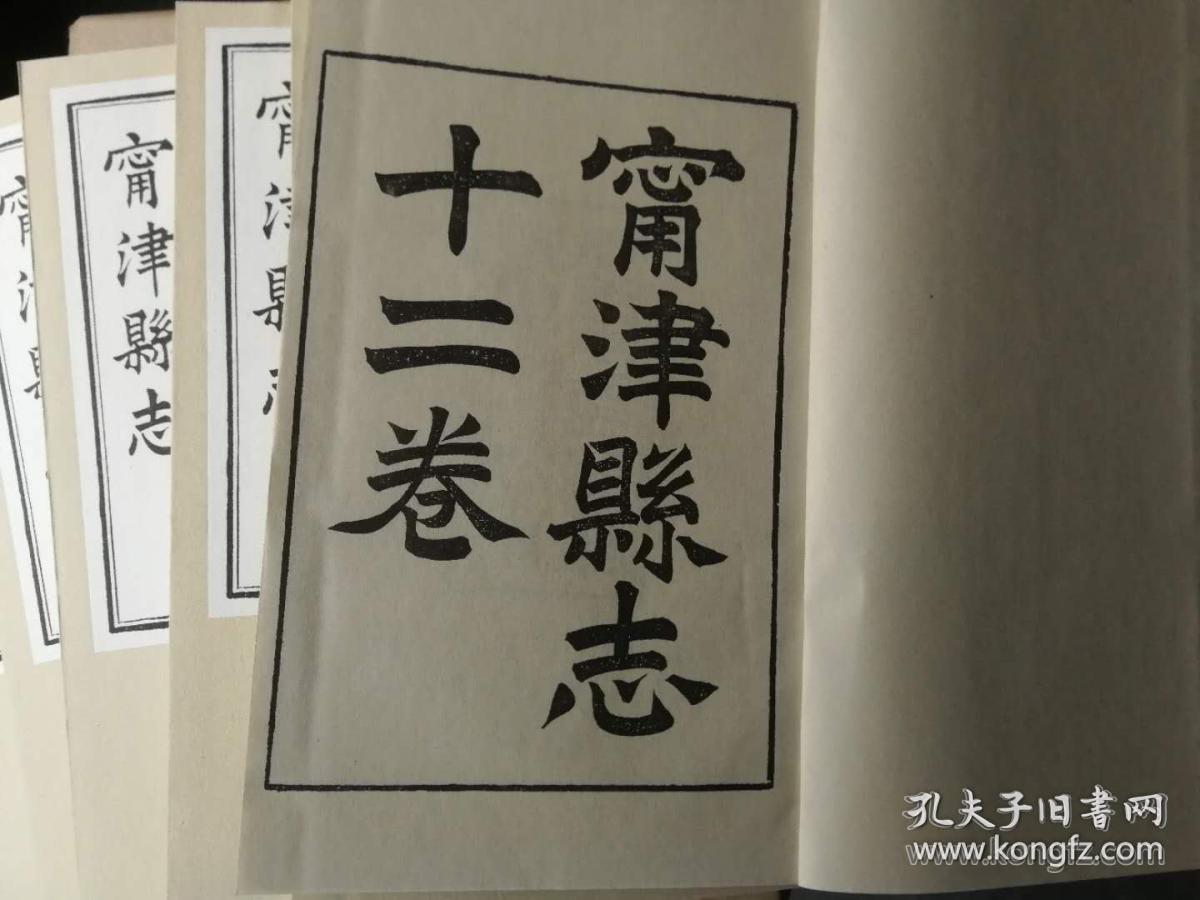 甯津縣志
十二卷
甯津縣志
甯津縣志
甯津縣
孔夫子旧書网
www.kongfz.com